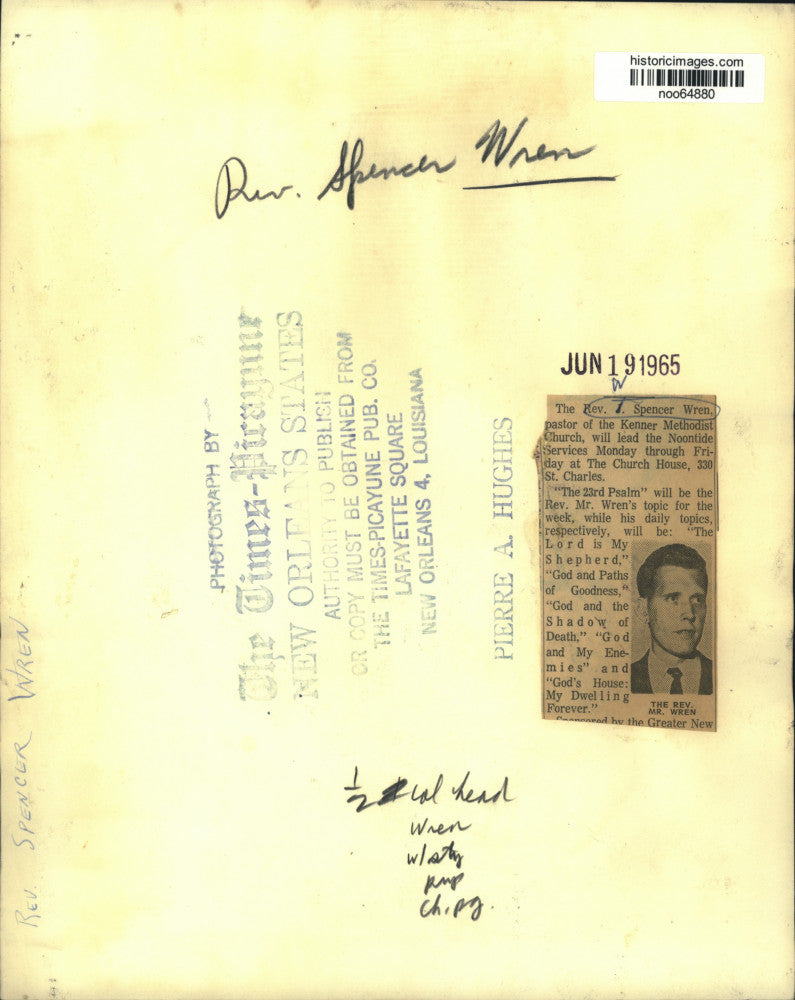 historicimages.com
noo64880
Rev. Spencer Wren
PHOTOGRAPH BY
The Times-Picayune
NEW ORLEANS STATES
AUTHORITY TO PUBLISH
OR COPY MUST BE OBTAINED FROM
THE TIMES-PICAYUNE PUB. CO.
LAFAYETTE SQUARE
NEW ORLEANS 4, LOUISIANA
PIERRE A. HUGHES
JUN 19 1965
The Rev. T. Spencer Wren,
pastor of the Kenner Methodist
Church, will lead the Noontide
Services Monday through Fri-
day at The Church House, 330
St. Charles.
"The 23rd Psalm" will be the
Rev. Mr. Wren's topic for the
week, while his daily topics,
respectively, will be: "The
Lord is My
Shepherd,"
"God and Paths
of Goodness,"
"God and the
Shadow of
Death," "God
and My Ene-
mies" and
"God's House:
My Dwelling
Forever."
THE REV.
MR. WREN
Sponsored by the Greater New
1/2 col head
Wren
w/sty
ch. pg.
REV. SPENCER WREN